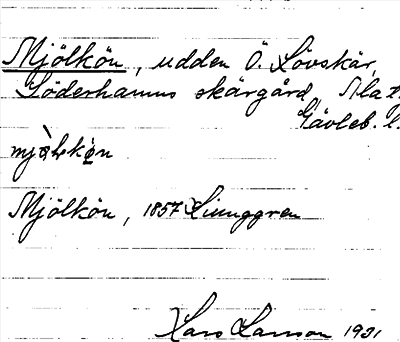 Mjölkön, udden Ö. Lövskär,
Söderhamns skärgård,
Gävleb. l.
Mjölkön, 1857 Ljunggren
Lars Larsson 1931